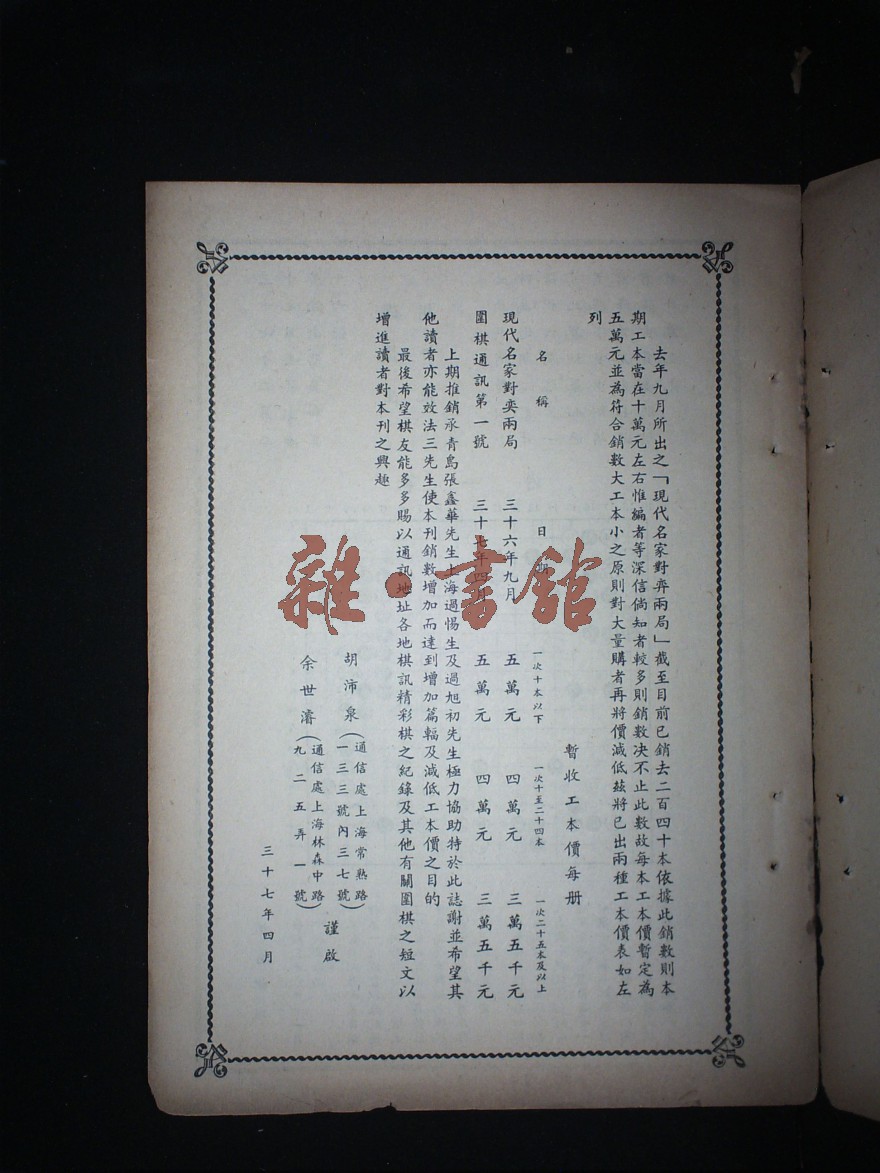 去年九月所出之「現代名家對弈兩局」截至目前已銷去二百四十本依據此銷數則本
期工本當在十萬元左右惟編者等深信倘知者較多則銷數決不止此數故每本工本價暫定為
五萬元並為符合銷數大工本小之原則對大量購者再將價減低茲將已出兩種工本價表如左
列
暫收工本價每册
名稱 日期 一次十本以下 一次十至二十四本 一次二十五本及以上
現代名家對奕兩局 三十六年九月 五萬元 四萬元 三萬五千元
圍棋通訊第一號 三十七年四月 五萬元 四萬元 三萬五千元
上期推銷承青島張鑫華先生上海過惕生及過旭初先生極力協助特於此誌謝並希望其
他讀者亦能效法三先生使本刊銷數增加而達到增加篇輻及減低工本價之目的
最後希望棋友能多多賜以通訊地址各地棋訊精彩棋之紀錄及其他有關圍棋之短文以
增進讀者對本刊之興趣
胡沛泉(通信處上海常熟路一三三號內三七號)
余世濬(通信處上海林森中路九二五弄一號)
謹啟
三十七年四月
雜·書館